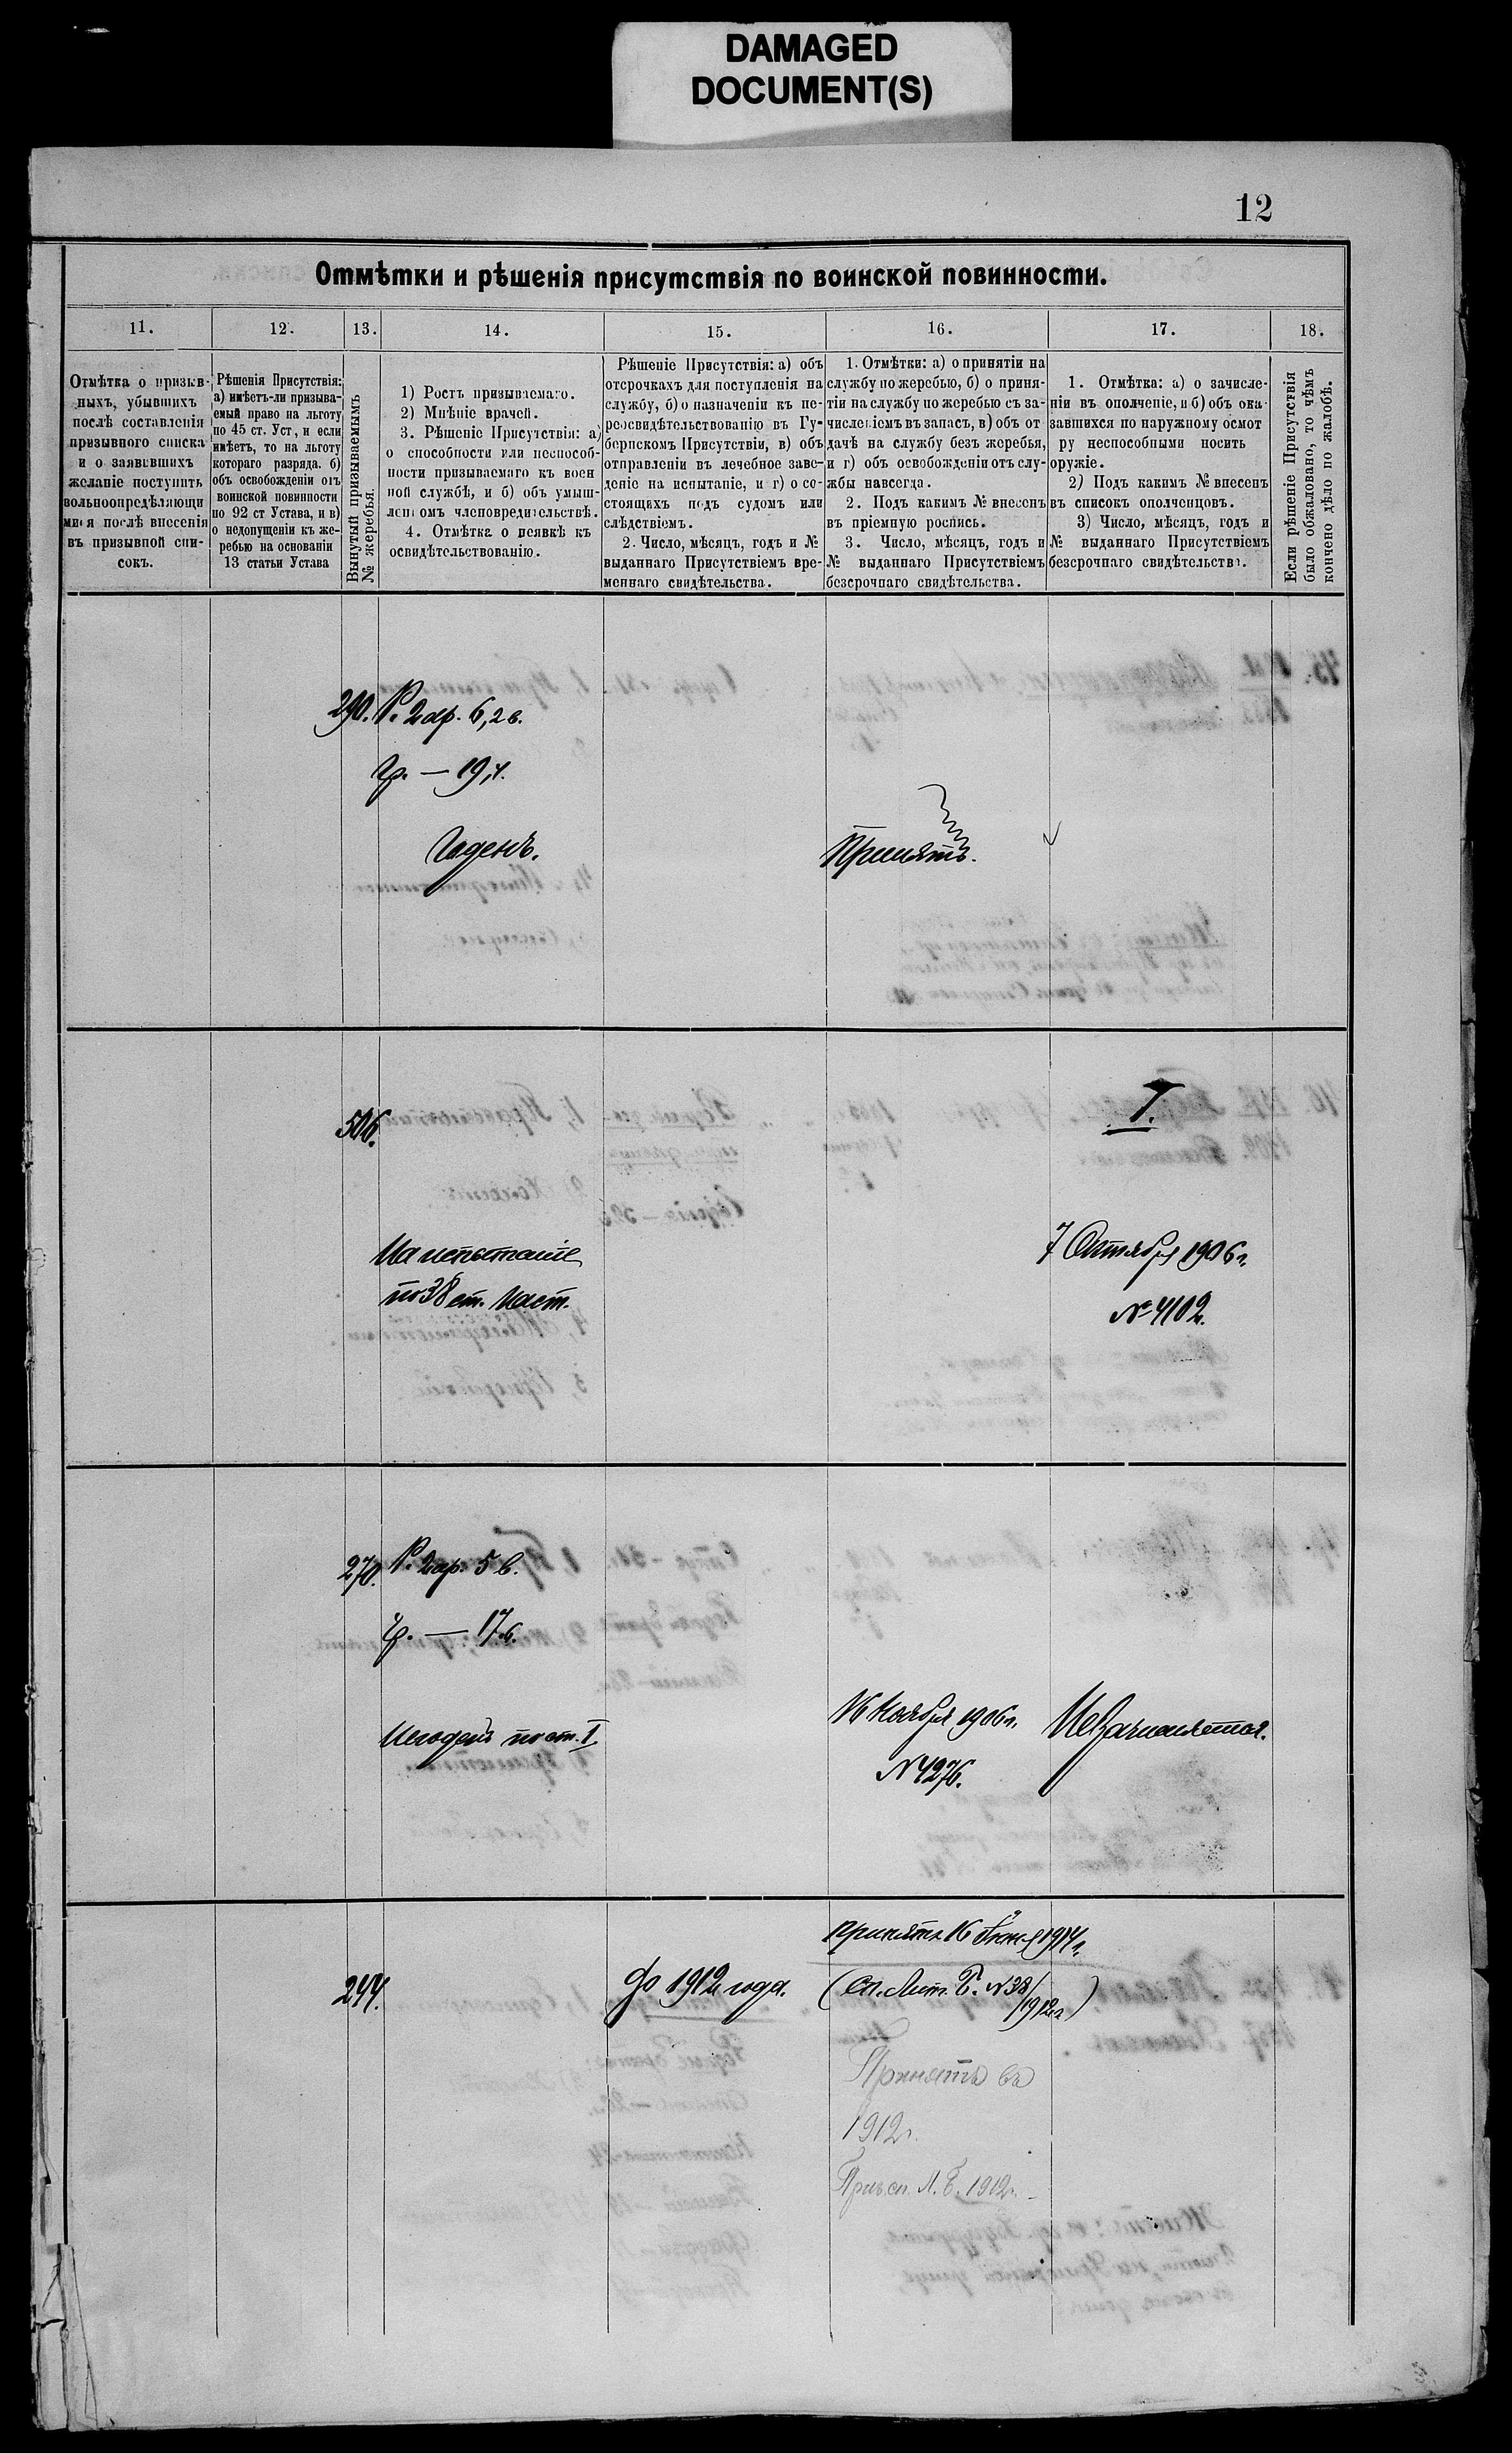 DAMAGED
DOCUMENT(S)
12
Отмѣтки и рѣшенія присутствія по воинской повинности.
11.
12.
13.
14.
15.
16.
17.
18.
Отмѣтка о призыв-
ныхъ, убывшихъ
послѣ составленія
призывного списка
и о заявившихъ
желаніе поступить
вольноопредѣляющи
мися послѣ внесенія
въ призывной спи-
сокъ.
Рѣшенія Присутствія:
а) имѣетъ-ли призыва-
емый право на льготу
по 45 ст. Уст, и если
имѣетъ, то на льготу
котораго разряда. б)
объ освобожденіи отъ
воинской повинности
по 92 ст Устава, и в)
о недопущеніи къ же-
ребью на основаніи
13 статьи Устава
Вынутый призываемымъ
№ жеребья.
1) Ростъ призываемаго.
2) Мнѣніе врачей.
3. Рѣшеніе Присутствія: а)
о способности или неспособ-
ности призываемаго къ воен
ной службѣ, и б) объ умыш-
леномъ членовредительствѣ.
4. Отмѣтка о неявкѣ къ
освидѣтельствованію.
Рѣшеніе Присутствія: а) объ
отсрочкахъ для поступленія на
службу, б) о назначеніи къ пе-
реосвидѣтельствованію въ Гу-
бернскомъ Присутствіи, в) объ
отправленіи въ лечебное заве-
деніе на испытаніе, и г) о со-
стоящихъ подъ судомъ или
слѣдствіемъ.
2. Число, мѣсяцъ, годъ и №
выданнаго Присутствіемъ вре-
меннаго свидѣтельства.
1. Отмѣтки: а) о принятіи на
службу по жеребью, б) о приня-
тіи на службу по жеребью съ за-
численіемъ въ запасъ, в) объ от
дачѣ на службу безъ жеребья,
и г) объ освобожденіи отъ слу-
жбы навсегда.
2. Подъ какимъ № внесенъ
въ пріемную роспись.
3. Число, мѣсяцъ, годъ и
№ выданнаго Присутствіемъ
безсрочнаго свидѣтельства.
1. Отмѣтка: а) о зачисле-
ніи въ ополченіе, и б) объ ока-
завшихся по наружному осмот
ру неспособными носить
оружіе.
2) Подъ какимъ № внесенъ
въ списокъ ополченцовъ.
3) Число, мѣсяцъ, годъ и
№ выданнаго Присутствіемъ
безсрочнаго свидѣтельства.
Если рѣшеніе Присутствія
было обжаловано, то чѣмъ
кончено дѣло по жалобѣ.
290.
Р. 2 ар. 6,2 в.
Гр. — 19,4.
Годенъ.
Принятъ.
506.
На испытаніе
по 38 ст. Наст.
I.
7 Октября 1906 г.
№ 4102.
270.
Р. 2 ар. 5 в.
Гр. — 17 в.
Негоденъ по ст. I.
16 Ноября 1906 г.
N 4276.
Не зачисляется.
244.
До 1912 года.
Принятъ 16 Іюня 1914 г.
(Сп. Лит. Б. N 38/1912 г)
Принятъ въ
1912 г.
Приз. сп. Л. Б. 1912 г.